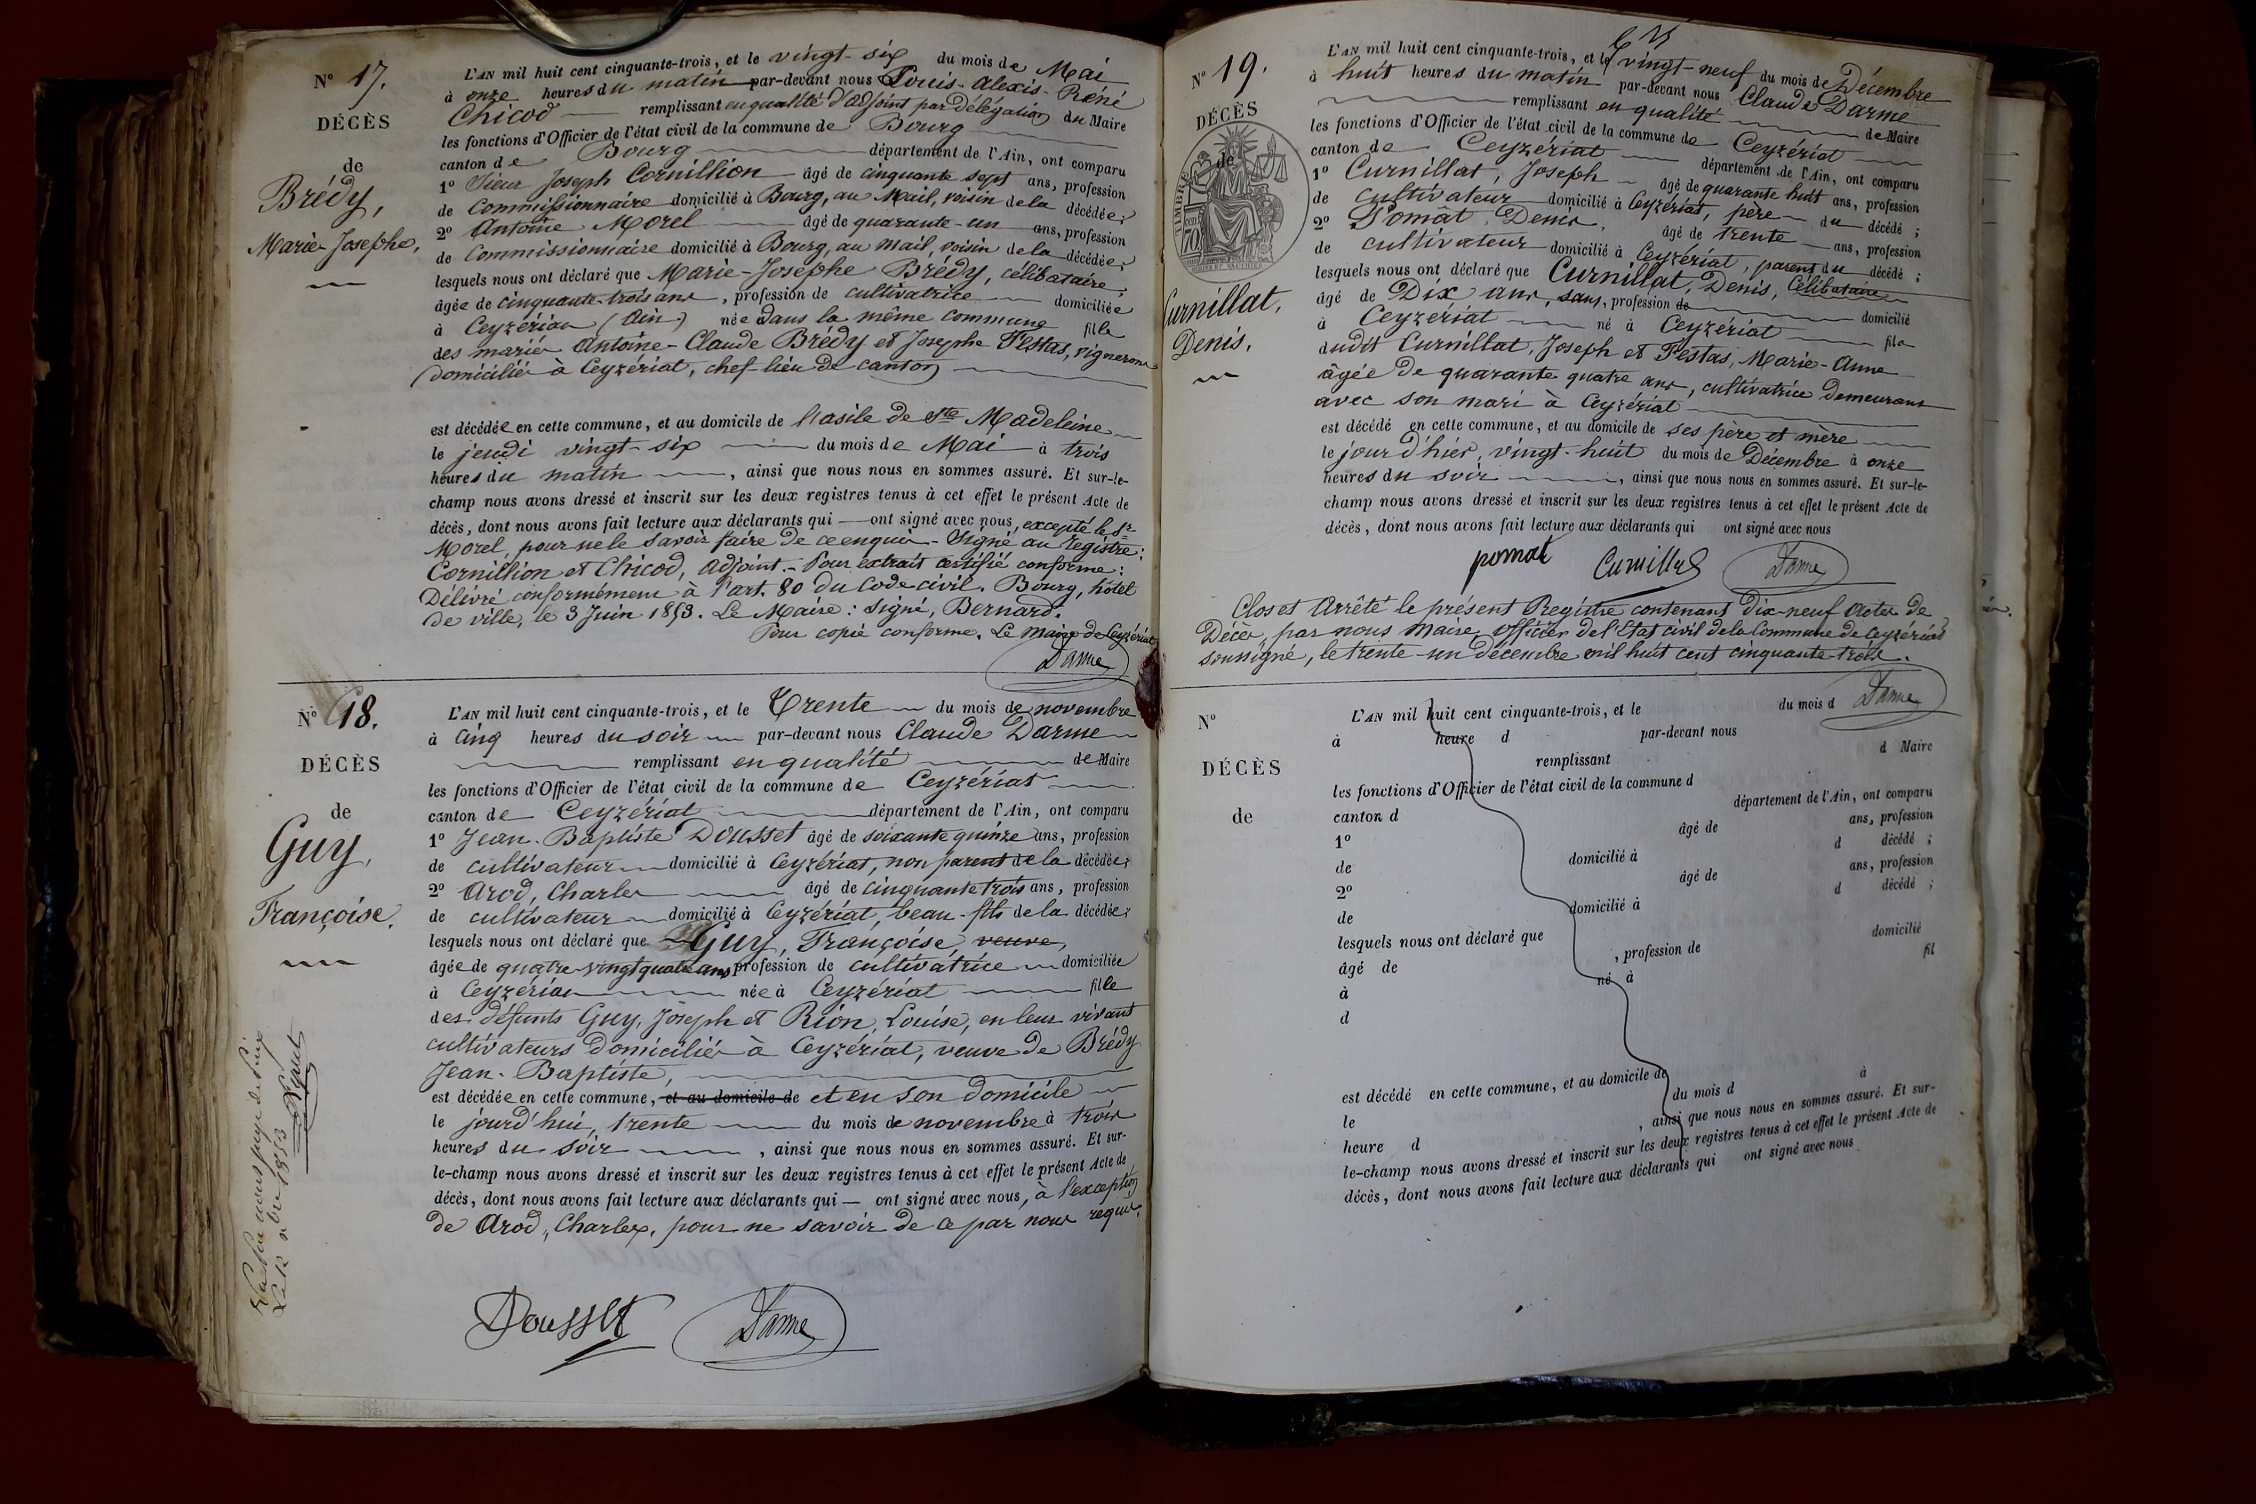 N° 17.
DÉCÈS
de
Brédy,
Marie-Josephe,
L'AN mil huit cent cinquante-trois, et le vingt-six du mois de Mai
à onze heures du matin par-devant nous Louis-Alexis-Réné
Chicod remplissant en qualité d'adjoint par délégation du Maire
les fonctions d'Officier de l'état civil de la commune de Bourg
canton de Bourg département de l'Ain, ont comparu
1° Sieur Joseph Cornillion âgé de cinquante sept ans, profession
de Commissionnaire domicilié à Bourg, au Mail, voisin de la décédée;
2° Antoine Morel âgé de quarante-un ans, profession
de Commissionnaire domicilié à Bourg, au Mail, voisin de la décédée;
lesquels nous ont déclaré que Marie-Josephe Brédy, célibataire,
âgée de cinquante-trois ans, profession de cultivatrice domiciliée
à Ceyzériat (Ain) née dans la même commune fille
des mariés Antoine-Claude Brédy et Josephe Festas, vignerons
domiciliés à Ceyzériat, chef-lieu de canton
est décédée en cette commune, et au domicile de l'asile de Ste Madeleine
le jeudi vingt-six du mois de Mai à trois
heures du matin, ainsi que nous nous en sommes assuré. Et sur-le-
champ nous avons dressé et inscrit sur les deux registres tenus à cet effet le présent Acte de
décès, dont nous avons fait lecture aux déclarants qui ont signé avec nous, excepté le Sr
Morel, pour ne le savoir faire de ce enquis. Signé au registre:
Cornillion et Chicod, adjoint. - Pour extrait certifié conforme:
Délivré conformément à l'art. 80 du Code civil. Bourg, hôtel
de ville, le 3 Juin 1853. Le Maire: signé, Bernard.
Pour copie conforme. Le Maire de Ceyzériat
Darme
N° 18.
DÉCÈS
de
Guy,
Françoise.
L'AN mil huit cent cinquante-trois, et le Trente du mois de novembre
à cinq heures du soir par-devant nous Claude Darme
remplissant en qualité de Maire
les fonctions d'Officier de l'état civil de la commune de Ceyzériat
canton de Ceyzériat département de l'Ain, ont comparu
1° Jean-Baptiste Dousset âgé de soixante quinze ans, profession
de cultivateur domicilié à Ceyzériat, non parent de la décédée;
2° Arod, Charles âgé de cinquante trois ans, profession
de cultivateur domicilié à Ceyzériat, beau-fils de la décédée;
lesquels nous ont déclaré que Guy, Françoise, veuve,
âgée de quatre-vingt quatre ans profession de cultivatrice domiciliée
à Ceyzériat née à Ceyzériat fille
des défunts Guy, Joseph et Rion, Louise, en leur vivant
cultivateurs domiciliés à Ceyzériat, veuve de Brédy
Jean-Baptiste,
est décédée en cette commune, et au domicile de et en son domicile
le jourd'hui, trente du mois de novembre à trois
heures du soir, ainsi que nous nous en sommes assuré. Et sur-
le-champ nous avons dressé et inscrit sur les deux registres tenus à cet effet le présent Acte de
décès, dont nous avons fait lecture aux déclarants qui ont signé avec nous, à l'exception
de Arod, Charles, pour ne savoir de ce par nous requis.
Dousset Darme
1853
N° 19.
DÉCÈS
de
TIMBRE
70
Curnillat,
Denis.
L'AN mil huit cent cinquante-trois, et le vingt-neuf du mois de Décembre
à huit heures du matin par-devant nous Claude Darme
remplissant en qualité de Maire
les fonctions d'Officier de l'état civil de la commune de Ceyzériat
canton de Ceyzériat département de l'Ain, ont comparu
1° Curnillat, Joseph âgé de quarante huit ans, profession
de cultivateur domicilié à Ceyzériat, père du décédé;
2° Pomât Denis, âgé de trente ans, profession
de cultivateur domicilié à Ceyzériat, parent du décédé;
lesquels nous ont déclaré que Curnillat, Denis, Célibataire
âgé de Dix ans, sans, profession de domicilié
à Ceyzériat né à Ceyzériat fils
dudit Curnillat, Joseph et Festas, Marie-Anne
âgée de quarante quatre ans, cultivatrice demeurant
avec son mari à Ceyzériat
est décédé en cette commune, et au domicile de ses père et mère
le jour d'hier, vingt-huit du mois de Décembre à onze
heures du soir, ainsi que nous nous en sommes assuré. Et sur-le-
champ nous avons dressé et inscrit sur les deux registres tenus à cet effet le présent Acte de
décès, dont nous avons fait lecture aux déclarants qui ont signé avec nous
pomat Curnillat Darme
Clos et Arrêté le présent Registre contenant Dix-neuf Actes de
Décès, par nous Maire, officier de l'Etat civil de la Commune de Ceyzériat
soussigné, le trente-un décembre mil huit cent cinquante-trois.
Darme
N°
DÉCÈS
de
L'AN mil huit cent cinquante-trois, et le du mois d
à heure d par-devant nous
remplissant d Maire
les fonctions d'Officier de l'état civil de la commune d
canton d département de l'Ain, ont comparu
1° âgé de ans, profession
de domicilié à d décédé;
2° âgé de ans, profession
de domicilié à d décédé;
lesquels nous ont déclaré que
âgé de , profession de domicilié
à né à fil
d
est décédé en cette commune, et au domicile de
le du mois d à
heure d , ainsi que nous nous en sommes assuré. Et sur-
le-champ nous avons dressé et inscrit sur les deux registres tenus à cet effet le présent Acte de
décès, dont nous avons fait lecture aux déclarants qui ont signé avec nous